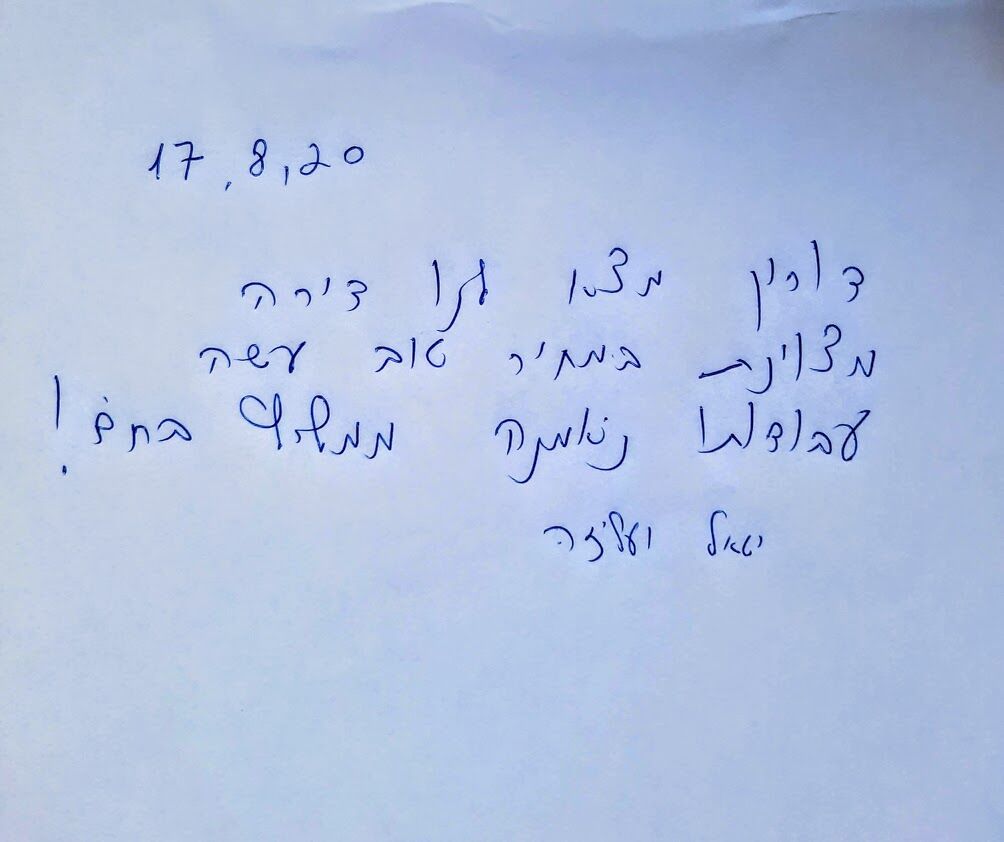 17.8.20
דורין מצא לנו דירה
מצוינת במחיר טוב עשה
עבודתו נאמנה ממליץ בחם!
יגאל ועליזה